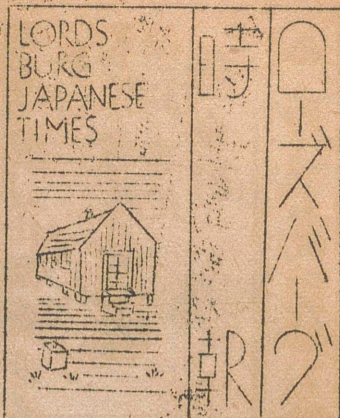 LORDS
BURG
JAPANESE
TIMES
ローズバーグ
時報